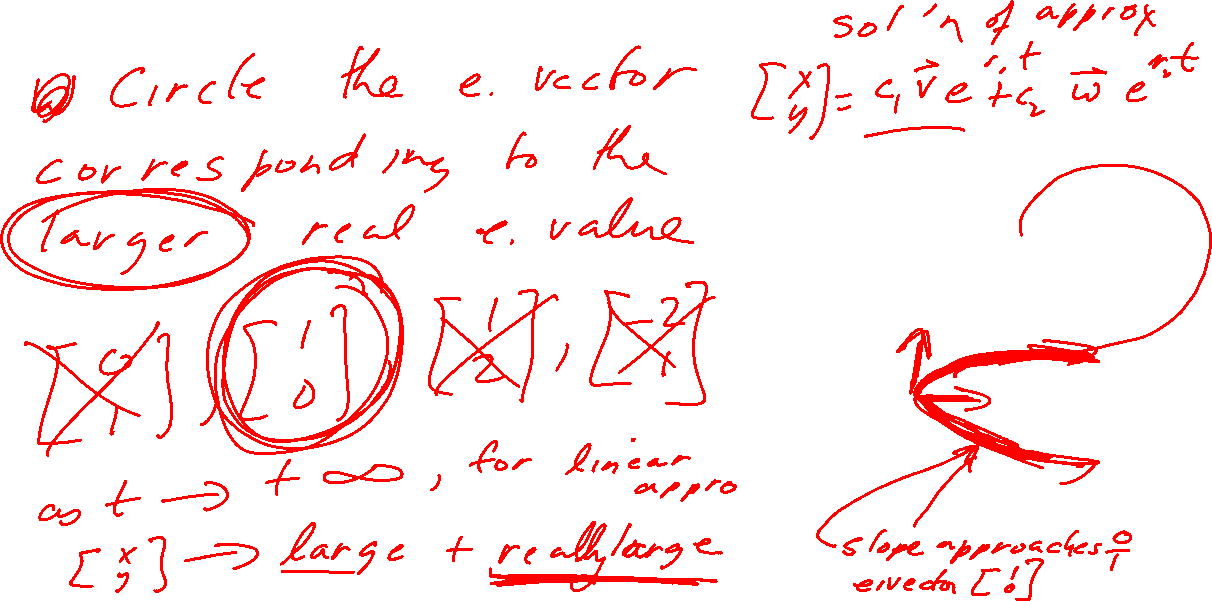 Circle the e. vector
corresponding to the
larger real e. value
[0 1], [1 0], [1 2], [-2 1]
as t → + ∞, for linear
appro
[x y] → large + really large
sol'n of approx
[x y] = c₁ v⃗ e^{r₁t} + c₂ w⃗ e^{r₂t}
slope approaches 0/1
eivector [1 0]